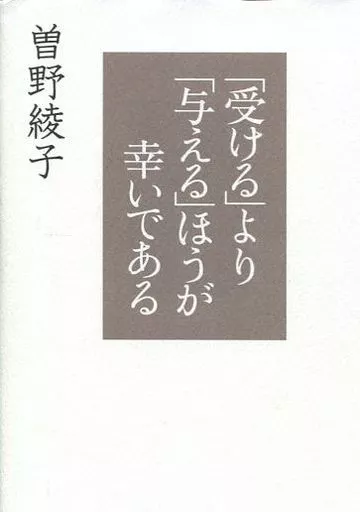 「受ける」より
「与える」ほうが
幸いである
曽野綾子